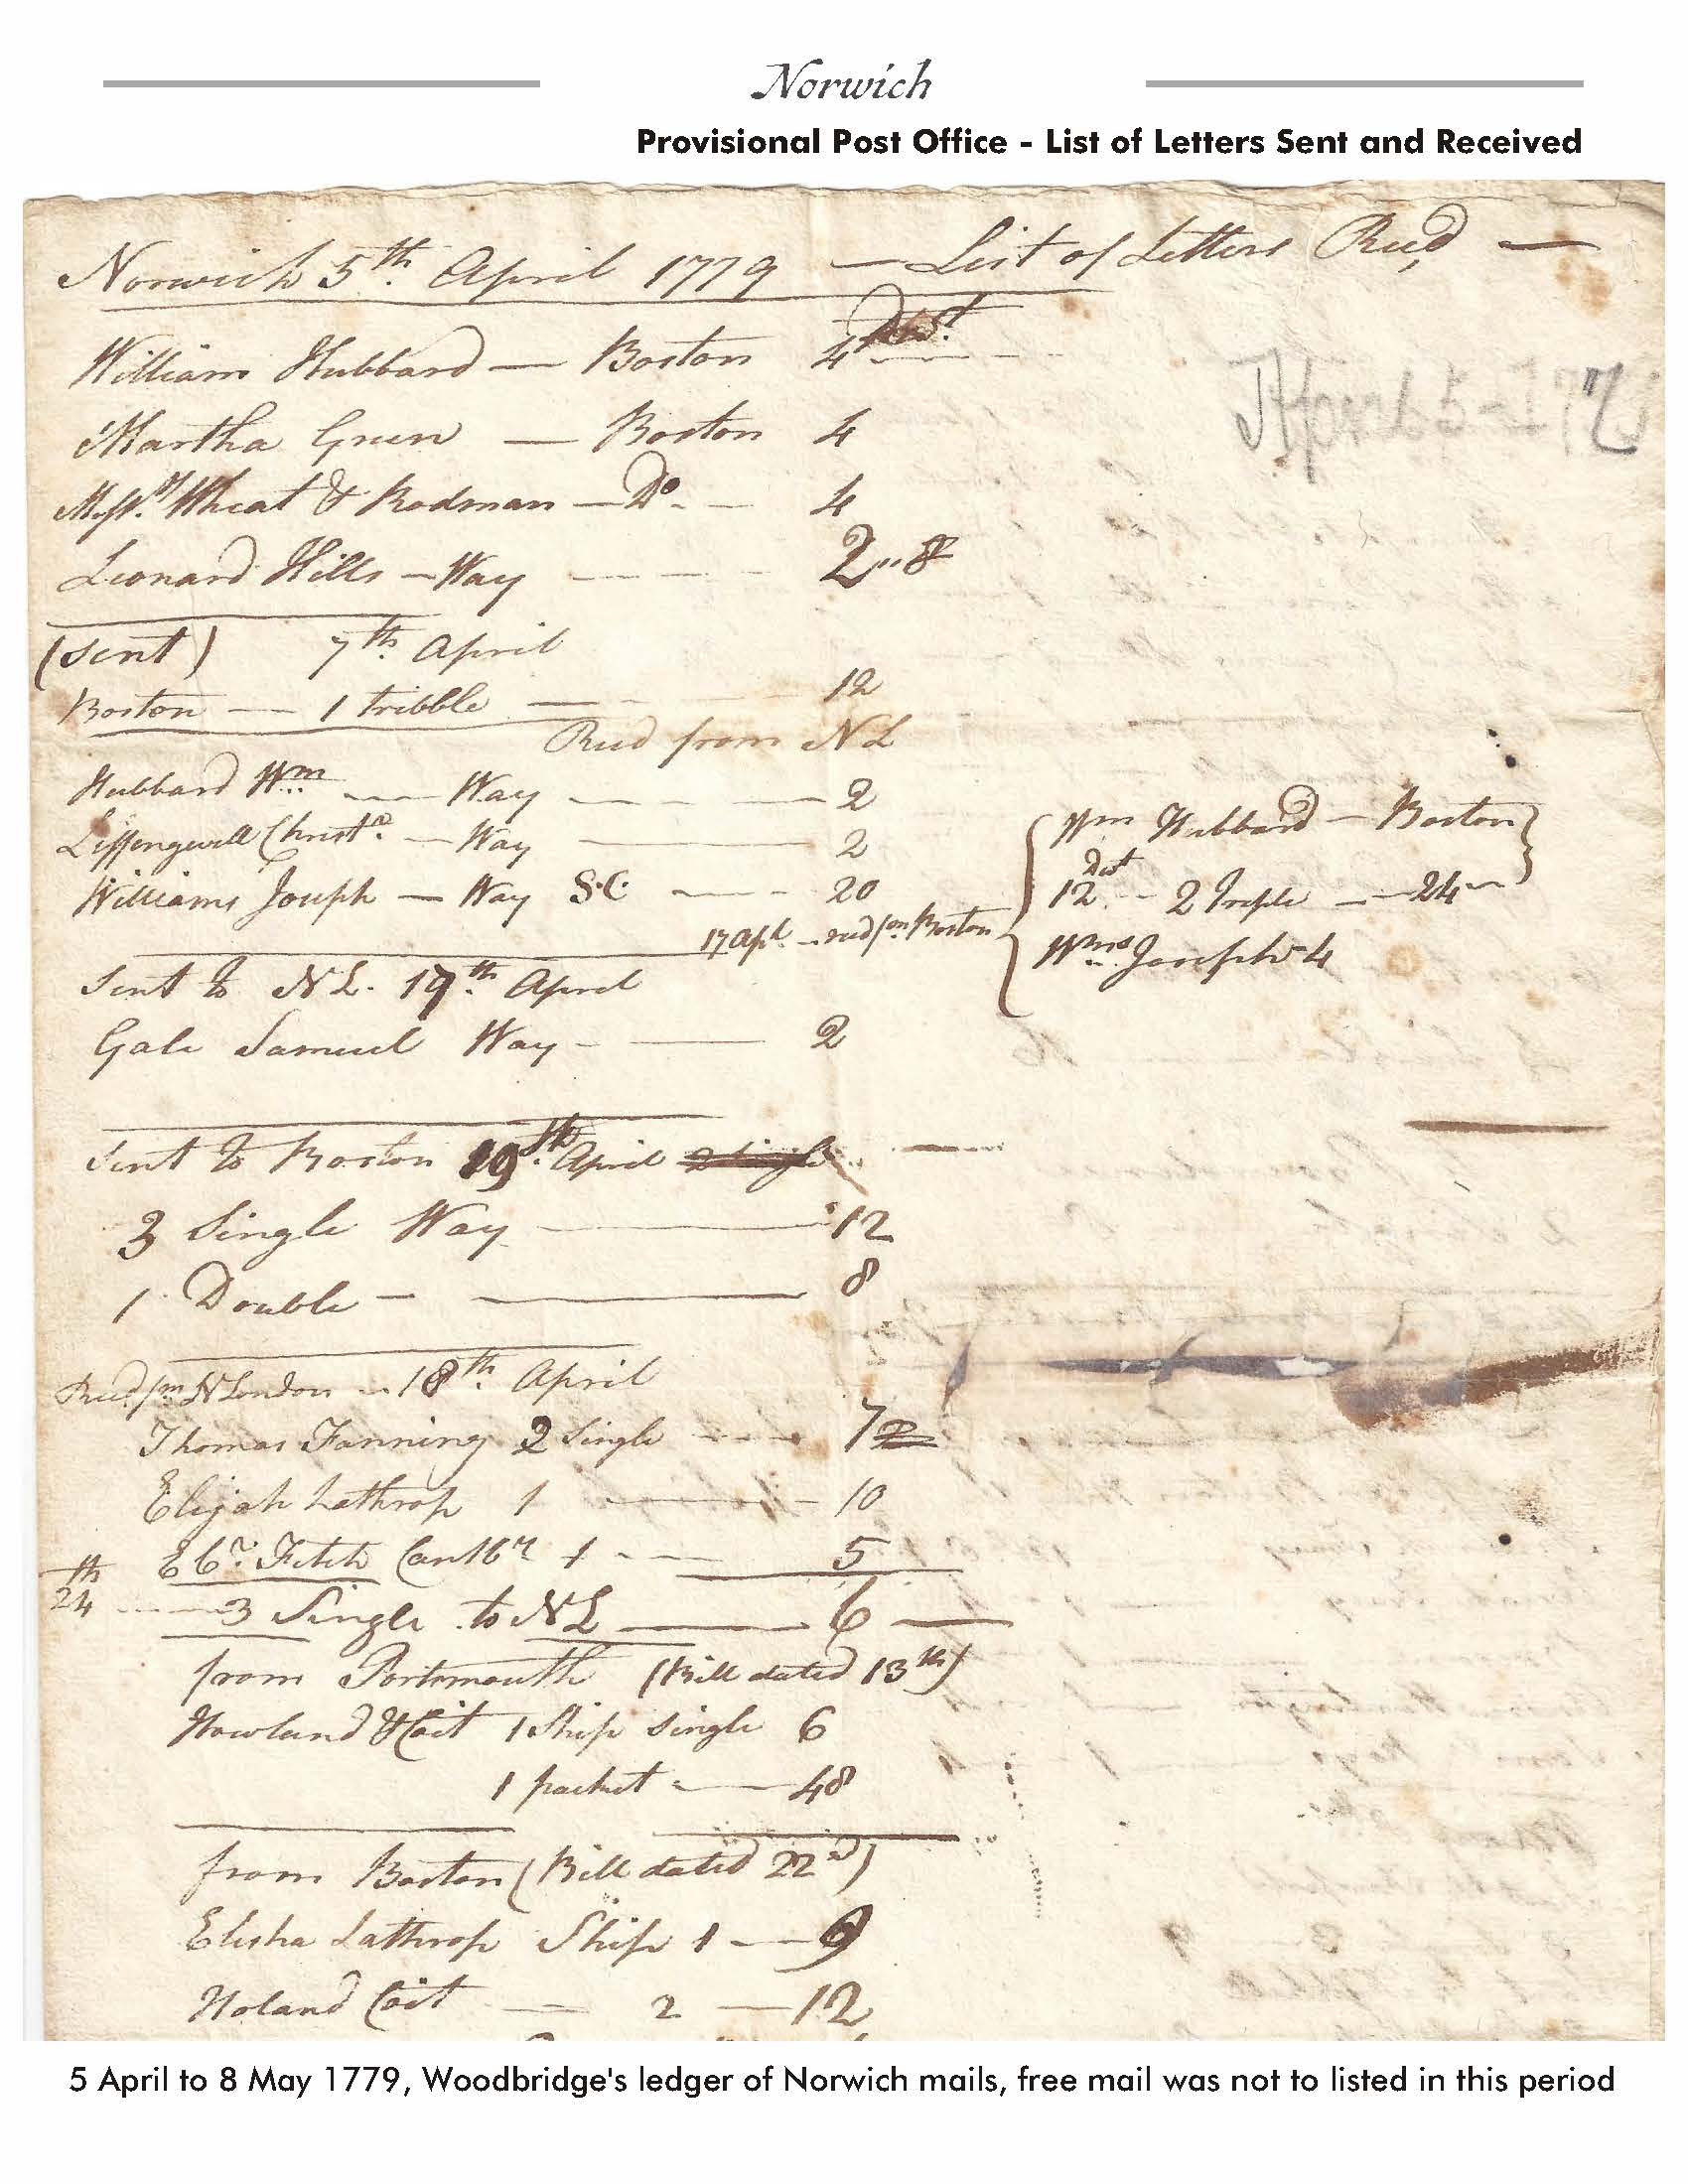 Norwich
Provisional Post Office - List of Letters Sent and Received
Norwich 5th April 1779 — List of Letters Recd —
Dwt
William Hubbard — Boston 4
April 5 - 177
Martha Green — Boston 4
Messrs Wheat & Rodman — Do - — 4
Leonard Hills — Way 2 " 8
(Sent) 7th April
Boston — 1 tribble — 12
Recd from NL
Hubbard Wm — Way — 2
Leffengwell Christr — Way — 2
Williams Joseph — Way S.C. — 20
17 Apl — recd fm Boston
Wm Hubbard — Boston
Dwt
12 — 2 Treple — 24
Wms Joseph 4
Sent to NL. 19th April
Gale Samuel Way — 2
Sent to Boston 19th April 2 Single
3 Single Way — 12
1 Double — 8
Recd fm N London — 18th April
Thomas Fanning 2 Single — 72
Elijah Lathrop 1 — 10
Ebr Fitch Cantbr 1 — 5
24th — 3 Single to NL — 6 —
from Portsmouth (Bill dated 13th)
Howland & Coit 1 Ship single 6
1 packet — 48
from Boston (Bill dated 22d)
Elisha Lathrop Ship 1 — 9
Holand Coit — 2 — 12
5 April to 8 May 1779, Woodbridge's ledger of Norwich mails, free mail was not to listed in this period